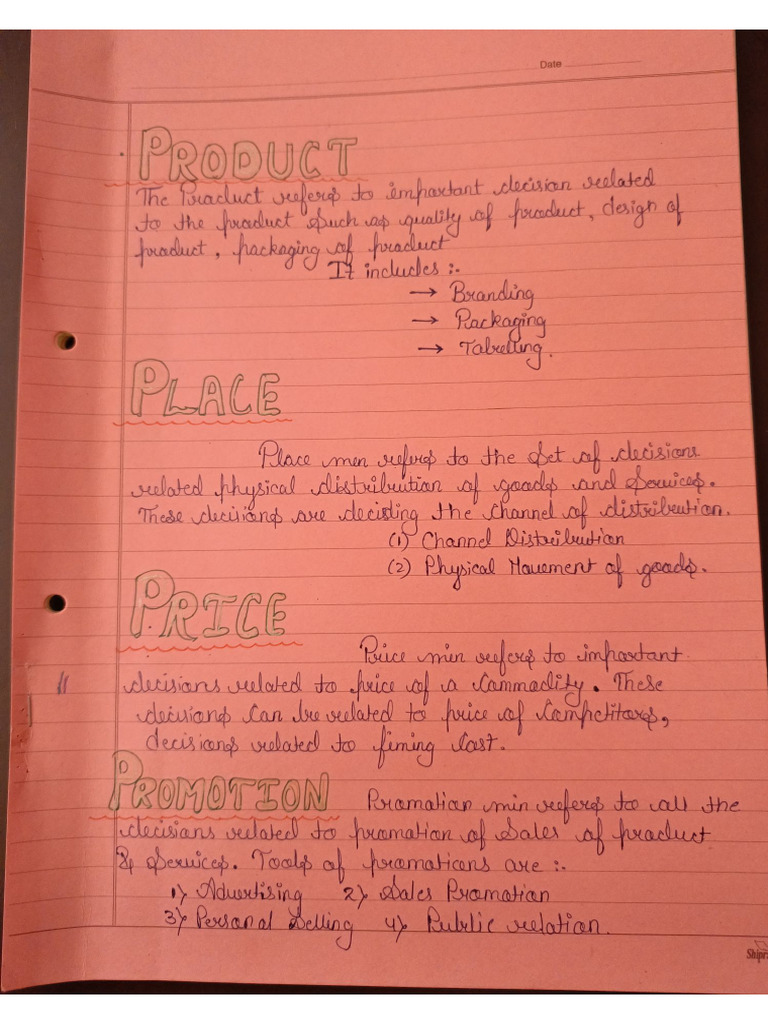 Date
PRODUCT
The Product refers to important decision related
to the product such as quality of product, design of
product, packaging of product
It includes :-
→ Branding
→ Packaging
→ Tabelling.
PLACE
Place mix refers to the set of decisions
related physical distribution of goods and services.
These decisions are deciding the channel of distribution.
(1) Channel Distribution
(2) Physical Movement of goods.
PRICE
Price mix refers to important
decisions related to price of a commodity. These
decisions can be related to price of competitors,
decisions related to fixing cost.
PROMOTION Promotion mix refers to all the
decisions related to promotion of sales of product
& services. Tools of promotions are :-
1) Advertising 2) Sales Promotion
3) Personal Selling 4) Public relation.